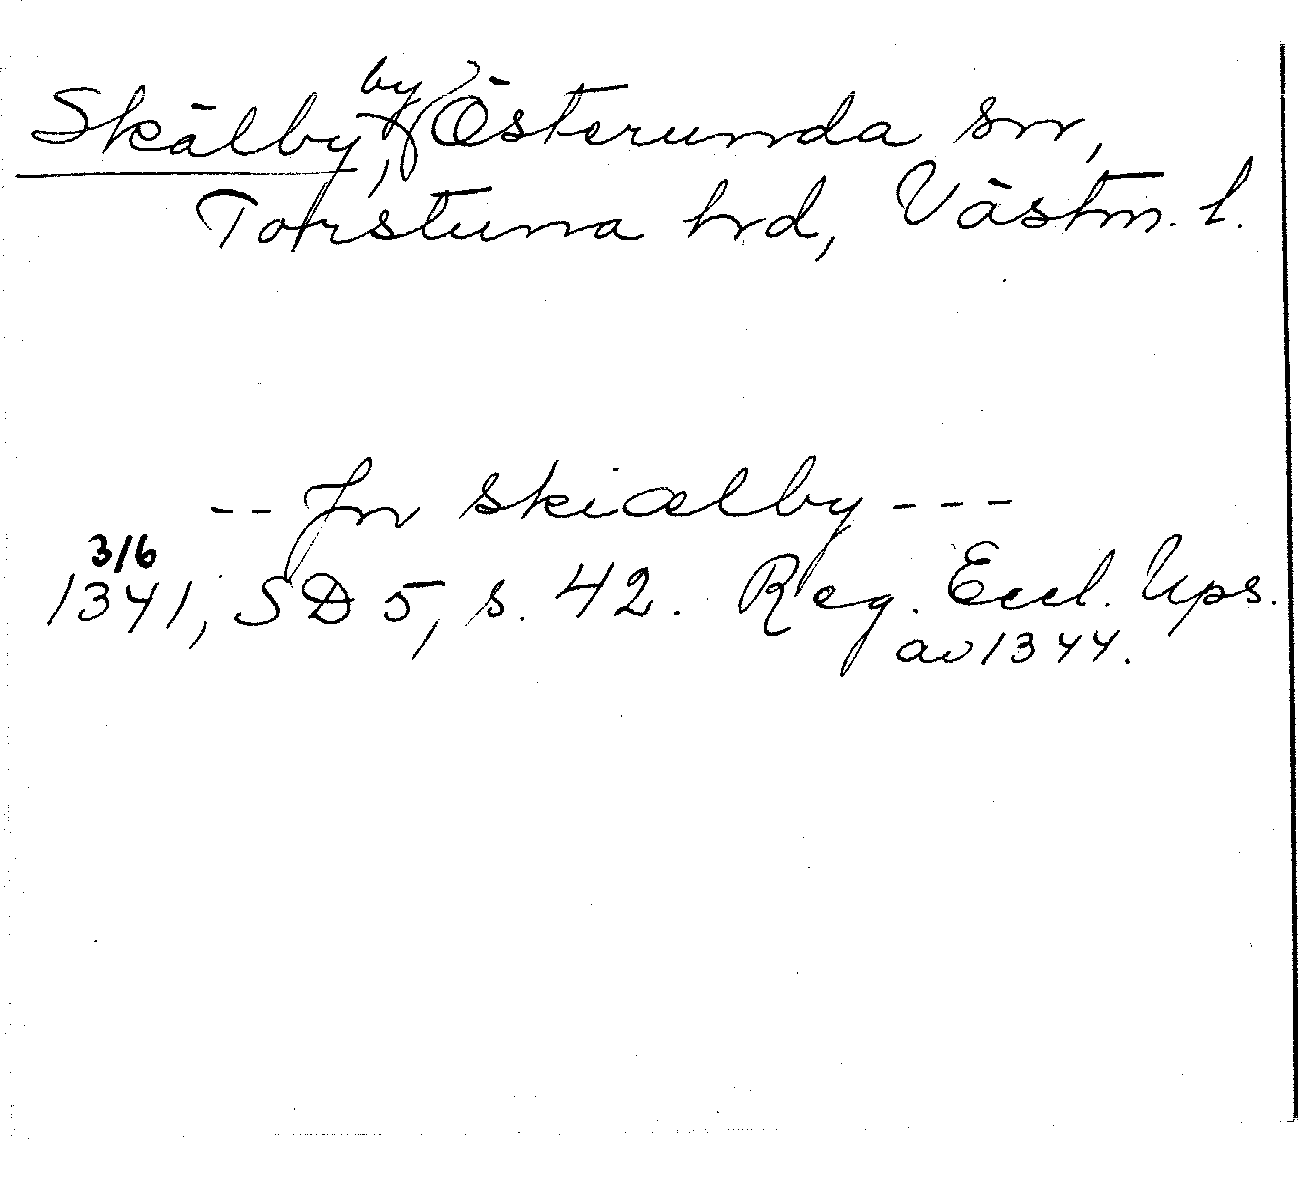 Skälby, by, Österunda sn,
Torstuna hrd, Västm. l.
-- Jn skiælby ---
3/6
1341, SD 5, s. 42. Reg. Eccl. Ups.
av 1344.